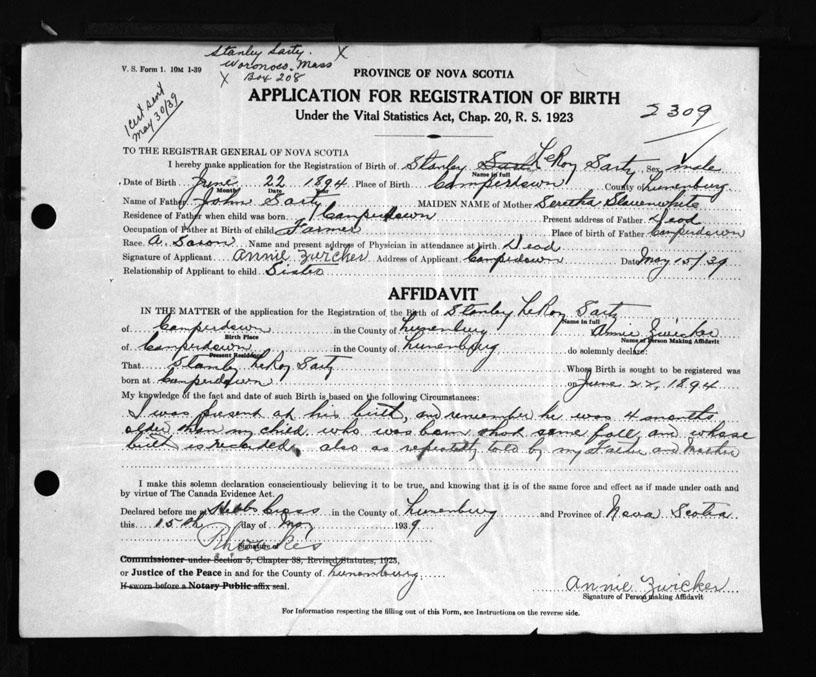 Stanley Sarty. X
Woronoco, Mass
X Box 208
V. S. Form 1. 10M 1-39
1 Cert sent
May 30/39
PROVINCE OF NOVA SCOTIA
APPLICATION FOR REGISTRATION OF BIRTH
Under the Vital Statistics Act, Chap. 20, R. S. 1923
2309
TO THE REGISTRAR GENERAL OF NOVA SCOTIA
I hereby make application for the Registration of Birth of Stanley LeRoy Sarty Sex male
Name in full
Date of Birth June 22 1894 Place of Birth Camperdown County of Lunenburg
Month Date Year
Name of Father John Sarty MAIDEN NAME of Mother Seretha Slauenwhite
Residence of Father when child was born Camperdown Present address of Father Dead
Occupation of Father at Birth of child Farmer Place of birth of Father Camperdown
Race A. Saxon Name and present address of Physician in attendance at birth Dead
Signature of Applicant Annie Zwicker Address of Applicant Camperdown Date May 15/39
Relationship of Applicant to child Sister
AFFIDAVIT
IN THE MATTER of the application for the Registration of the Birth of Stanley LeRoy Sarty
Name in full
of Camperdown in the County of Lunenburg Annie Zwicker
Birth Place Name of Person Making Affidavit
of Camperdown in the County of Lunenburg do solemnly declare:
Present Residence
That Stanley LeRoy Sarty Whose Birth is sought to be registered was
born at Camperdown on June 22, 1894
My knowledge of the fact and date of such Birth is based on the following Circumstances:
I was present at his birth, and remember he was 4 months
older than my child who was born that same fall, and whose
birth is recorded, also as repeatedly told by my Father and Mother
I make this solemn declaration conscientiously believing it to be true, and knowing that it is of the same force and effect as if made under oath and
by virtue of The Canada Evidence Act.
Declared before me at Hebbs Cross in the County of Lunenburg and Province of Nova Scotia
this 15th day of May 1939
Signature of
Commissioner under Section 5, Chapter 38, Revised Statutes, 1923,
or Justice of the Peace in and for the County of Lunenburg
If sworn before a Notary Public affix seal.
Annie Zwicker
Signature of Person making Affidavit
For Information respecting the filling out of this Form, see Instructions on the reverse side.